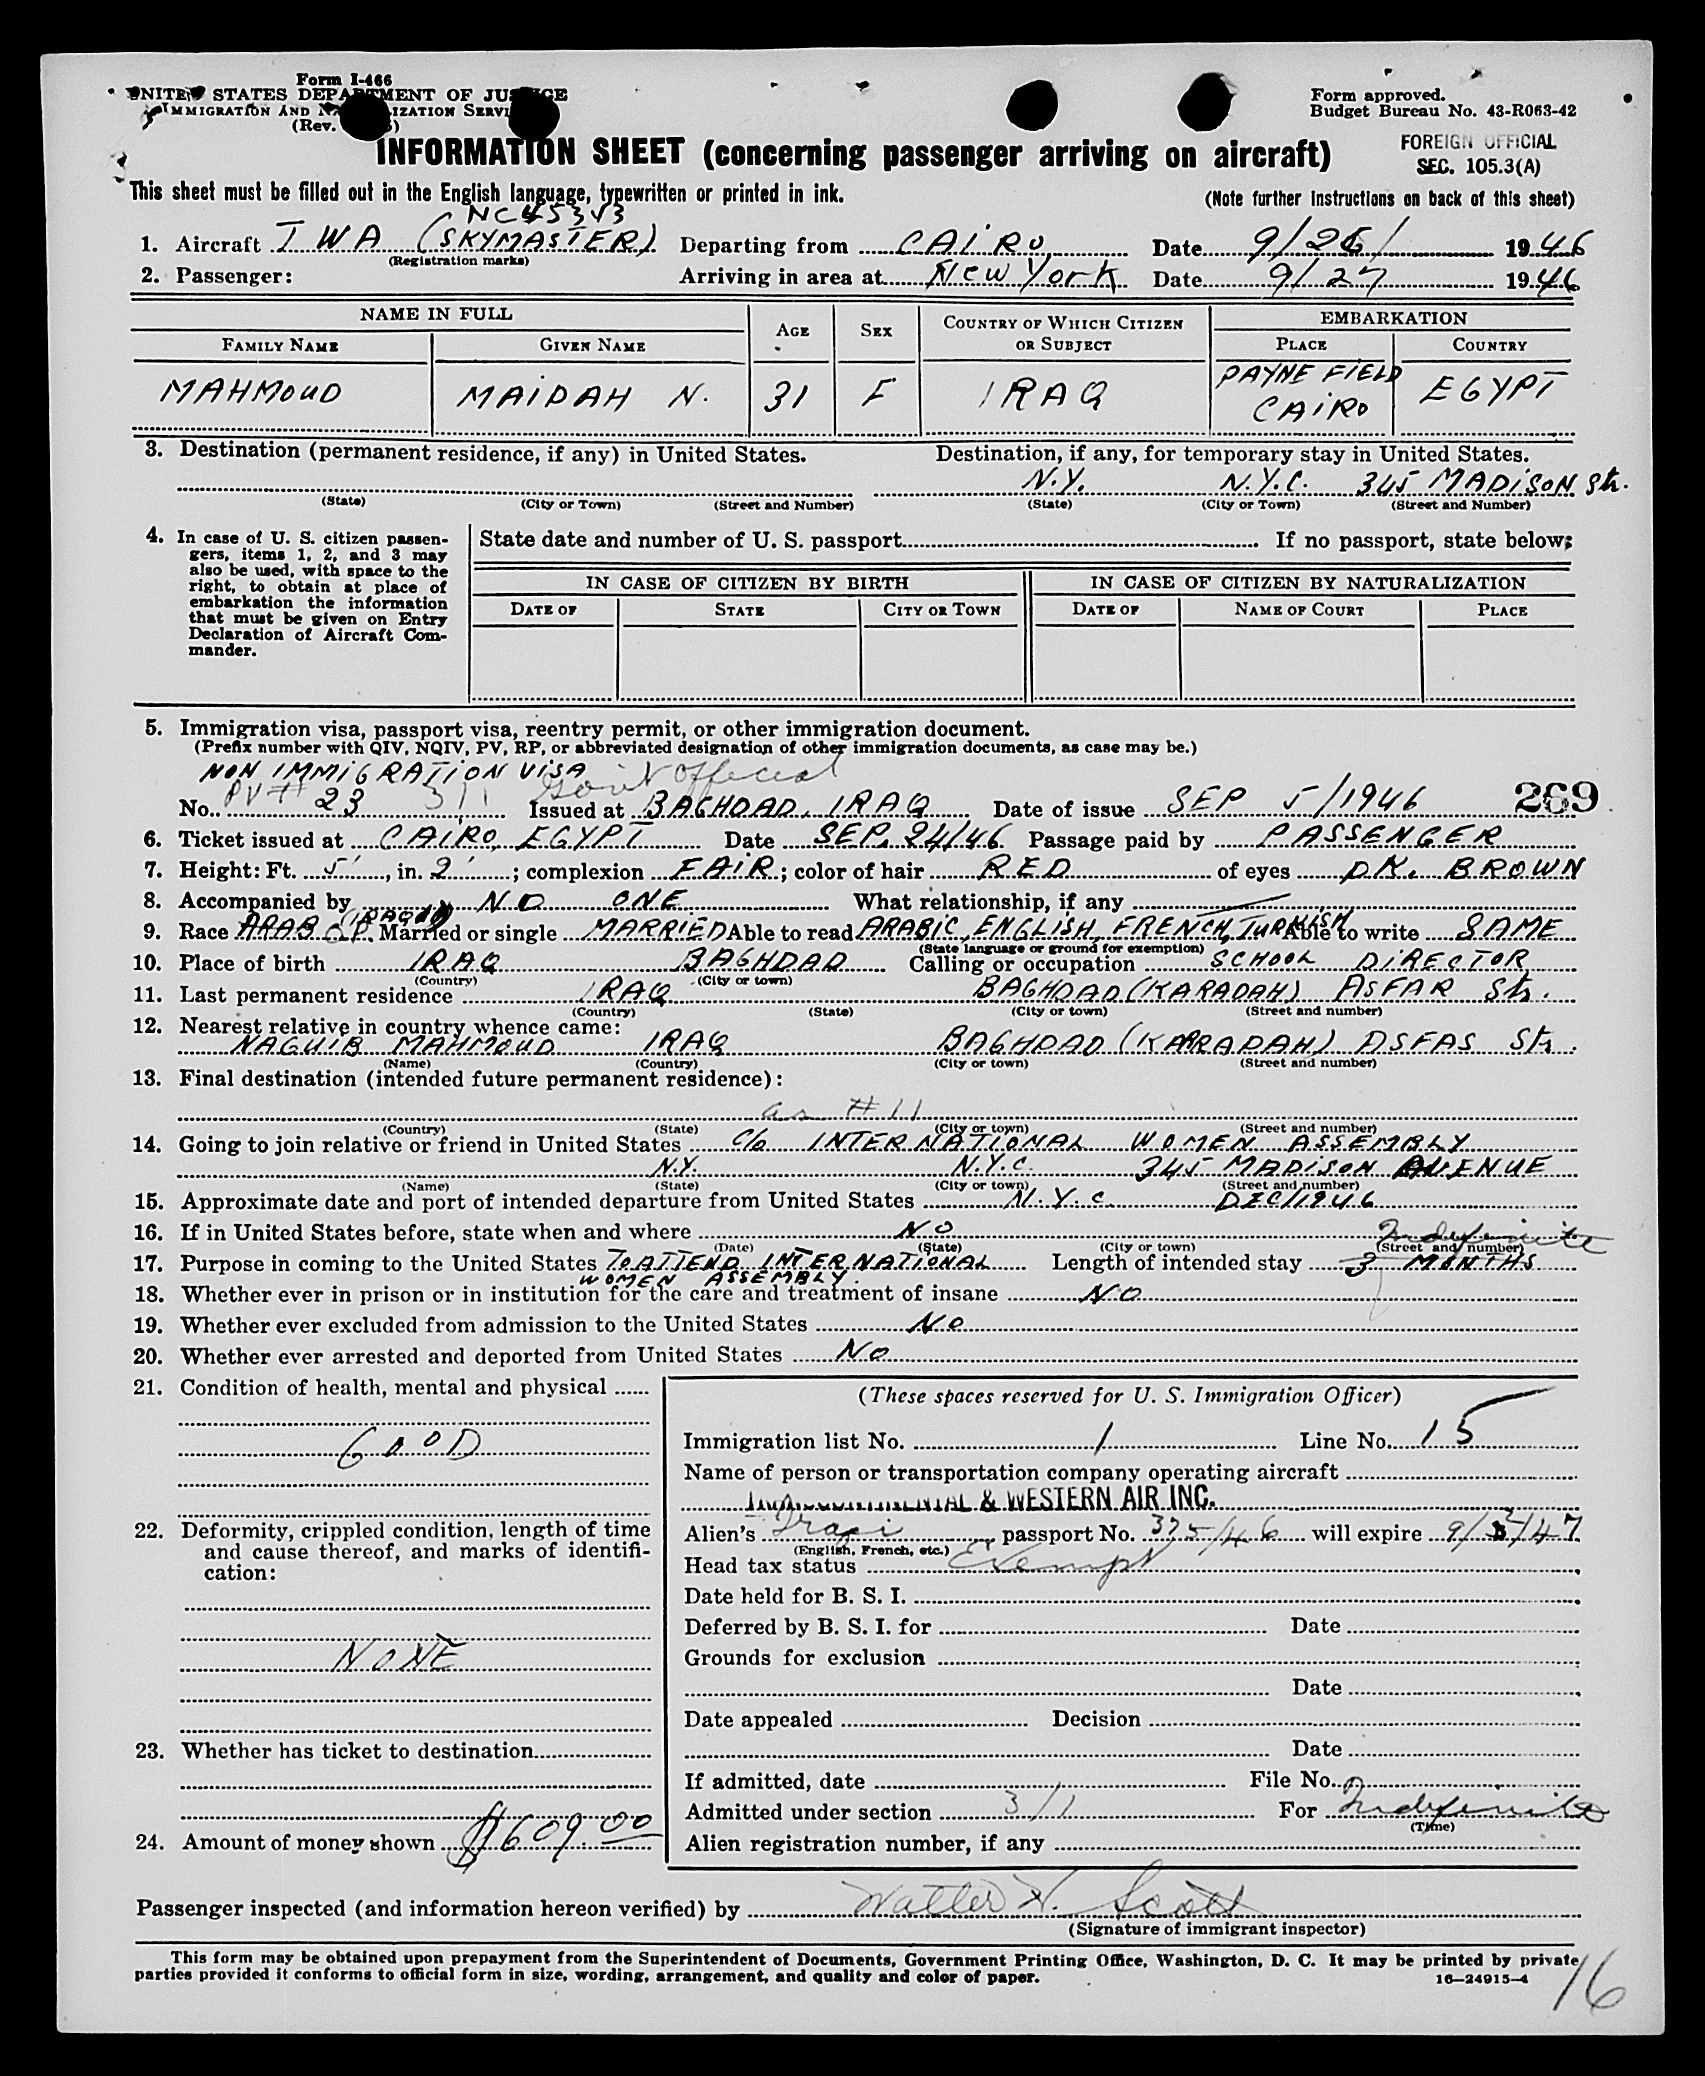 Form I-466
UNITED STATES DEPARTMENT OF JUSTICE
IMMIGRATION AND NATURALIZATION SERVICE
(Rev.
Form approved.
Budget Bureau No. 43-R063-42
FOREIGN OFFICIAL
SEC. 105.3(A)
INFORMATION SHEET (concerning passenger arriving on aircraft)
This sheet must be filled out in the English language, typewritten or printed in ink.
(Note further instructions on back of this sheet)
NC45343
1. Aircraft TWA (SKYMASTER) Departing from CAIRO Date 9/26/ 1946
(Registration marks)
2. Passenger: Arriving in area at New York Date 9/27 1946
NAME IN FULL
FAMILY NAME GIVEN NAME AGE SEX COUNTRY OF WHICH CITIZEN OR SUBJECT EMBARKATION PLACE COUNTRY
MAHMOUD MAIDAH N. 31 F IRAQ PAYNE FIELD CAIRO EGYPT
3. Destination (permanent residence, if any) in United States. Destination, if any, for temporary stay in United States.
N.Y. N.Y.C. 345 MADISON Str.
(State) (City or Town) (Street and Number) (State) (City or Town) (Street and Number)
4. In case of U. S. citizen passen-
gers, items 1, 2, and 3 may
also be used, with space to the
right, to obtain at place of
embarkation the information
that must be given on Entry
Declaration of Aircraft Com-
mander.
State date and number of U. S. passport If no passport, state below:
IN CASE OF CITIZEN BY BIRTH IN CASE OF CITIZEN BY NATURALIZATION
DATE OF STATE CITY OR TOWN DATE OF NAME OF COURT PLACE
5. Immigration visa, passport visa, reentry permit, or other immigration document.
(Prefix number with QIV, NQIV, PV, RP, or abbreviated designation of other immigration documents, as case may be.)
NON IMMIGRATION VISA Gov't Official
No. PV# 23 3/1 Issued at BAGHDAD, IRAQ Date of issue SEP 5/1946 269
6. Ticket issued at CAIRO, EGYPT Date SEP. 24/46 Passage paid by PASSENGER
7. Height: Ft. 5', in. 2'; complexion FAIR; color of hair RED of eyes DK. BROWN
8. Accompanied by NO ONE What relationship, if any
9. Race ARAB Married or single MARRIED Able to read ARABIC, ENGLISH, FRENCH, TURKISH Able to write SAME
(State language or ground for exemption)
10. Place of birth IRAQ BAGHDAD Calling or occupation SCHOOL DIRECTOR
(Country) (City or town)
11. Last permanent residence IRAQ BAGHDAD (KARADAH) ASFAR Str.
(Country) (State) (City or town) (Street and number)
12. Nearest relative in country whence came:
NAGUIB MAHMOUD IRAQ BAGHDAD (KARRADAH) DSFAS Str.
(Name) (Country) (City or town) (Street and number)
13. Final destination (intended future permanent residence):
as #11
(Country) (State) (City or town) (Street and number)
14. Going to join relative or friend in United States C/o INTERNATIONAL WOMEN ASSEMBLY
N.Y. N.Y.C. 345 MADISON AVENUE
(Name) (State) (City or town) (Street and number)
15. Approximate date and port of intended departure from United States N.Y.C. DEC/1946
16. If in United States before, state when and where NO
(Date) (State) (City or town) (Street and number)
Indefinite
17. Purpose in coming to the United States TO ATTEND INTERNATIONAL Length of intended stay 3 MONTHS
WOMEN ASSEMBLY.
18. Whether ever in prison or in institution for the care and treatment of insane NO
19. Whether ever excluded from admission to the United States No
20. Whether ever arrested and deported from United States No
21. Condition of health, mental and physical
GOOD
22. Deformity, crippled condition, length of time
and cause thereof, and marks of identifi-
cation:
NONE
23. Whether has ticket to destination
24. Amount of money shown $609.00
(These spaces reserved for U. S. Immigration Officer)
Immigration list No. 1 Line No. 15
Name of person or transportation company operating aircraft
& WESTERN AIR INC.
Alien's Iraqi passport No. 325/46 will expire 9/3/47
(English, French, etc.)
Head tax status Exempt
Date held for B. S. I.
Deferred by B. S. I. for Date
Grounds for exclusion
Date
Date appealed Decision
Date
If admitted, date File No.
Admitted under section 3/1 For Indefinite
(Time)
Alien registration number, if any
Passenger inspected (and information hereon verified) by Walter H. Scott
(Signature of immigrant inspector)
This form may be obtained upon prepayment from the Superintendent of Documents, Government Printing Office, Washington, D. C. It may be printed by private
parties provided it conforms to official form in size, wording, arrangement, and quality and color of paper.
16—24915-4
16